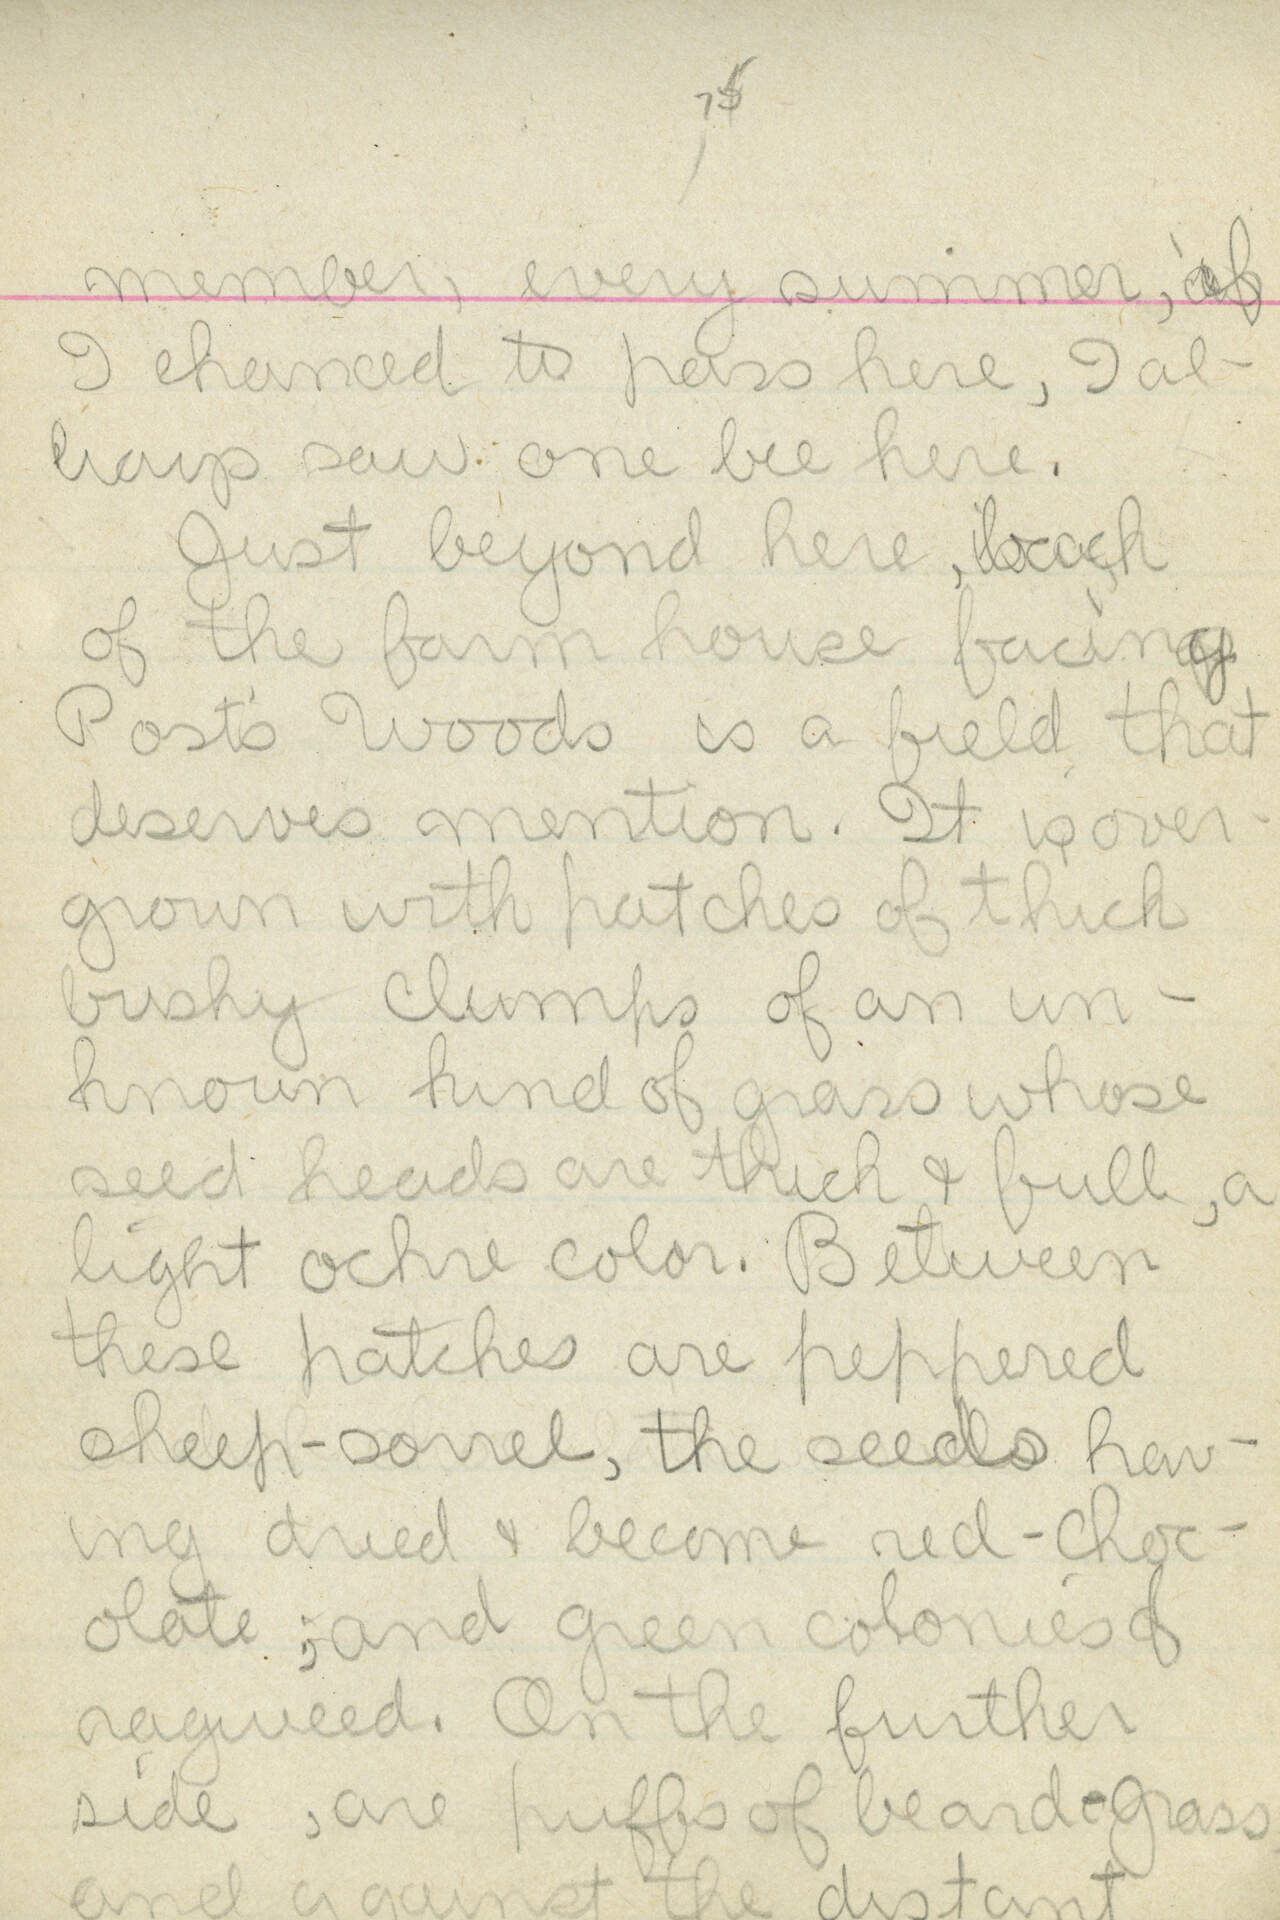 75
member, every summer, if
I chanced to pass here, I al-
ways saw one bee here.
Just beyond here, back
of the farm house facing
Post's Woods is a field that
deserves mention. It is over-
grown with patches of thick
bushy clumps of an un-
known kind of grass whose
seed heads are thick & full, a
light ochre color. Between
these patches are peppered
sheep-sorrel, the seeds hav-
ing dried & become red-choc-
olate; and green colonies of
ragweed. On the further
side, are puffs of beard-grass
and against the distant